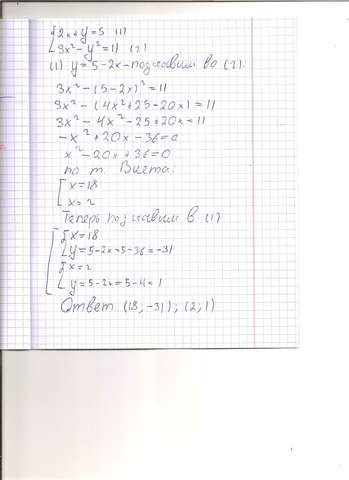 {2x+y=5 (1)
{3x²-y²=11 (2)
(1) y=5-2x - подставим во (2):
3x²-(5-2x)²=11
3x²-(4x²+25-20x)=11
3x²-4x²-25+20x=11
-x²+20x-36=0
x²-20x+36=0
по т. Виета:
[x=18
[x=2
Теперь подставим в (1)
[{x=18
{y=5-2x=5-36=-31
{x=2
{y=5-2x=5-4=1
Ответ (18;-31);(2;1)